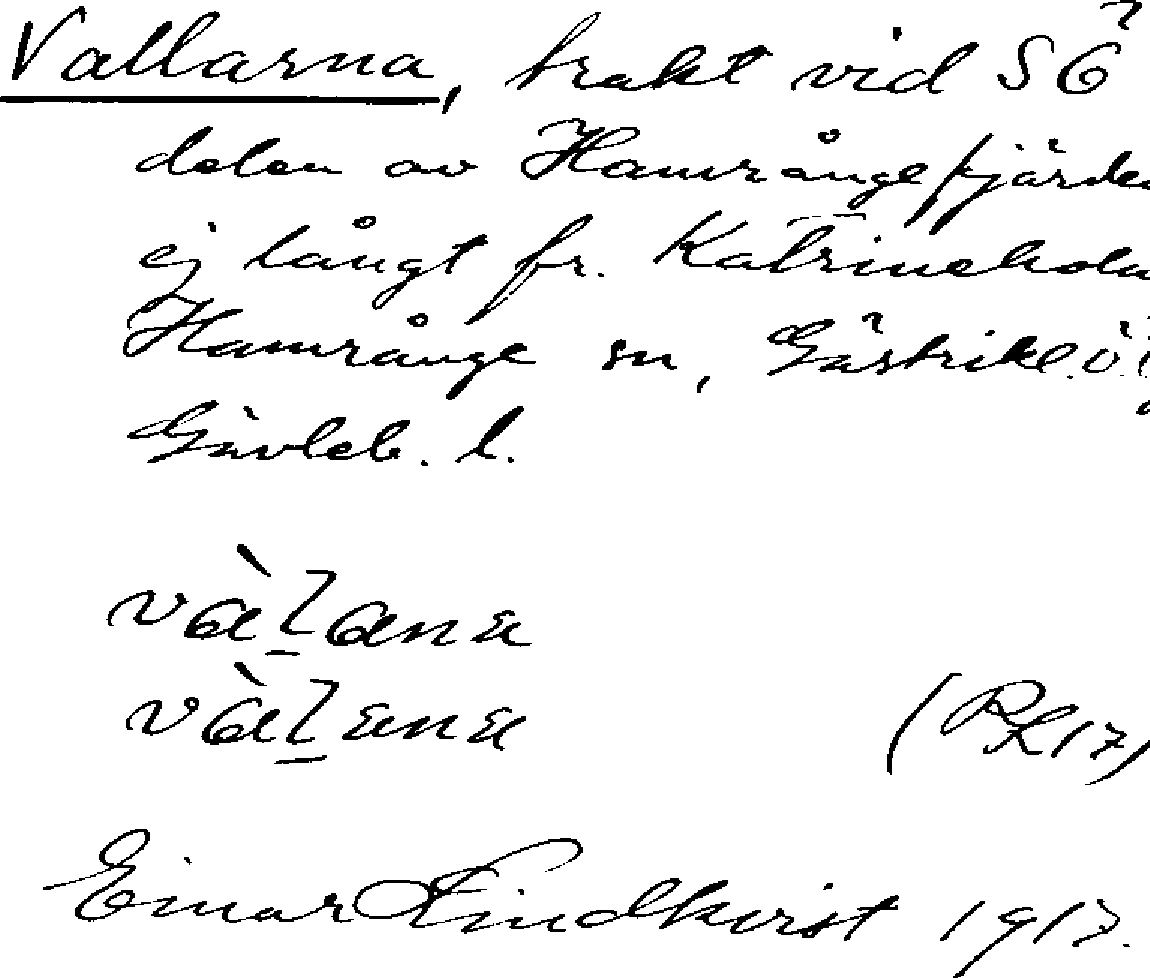 Vallarna, trakt vid SÖ
delen av Hamrångefjärden
ej långt fr. Katrineholm
Hamrånge sn, Gästrikl. ö.
Gävleb. l.
vàl̲ana
vàl̲ana
(RK17)
Einar Lindkvist 1917.